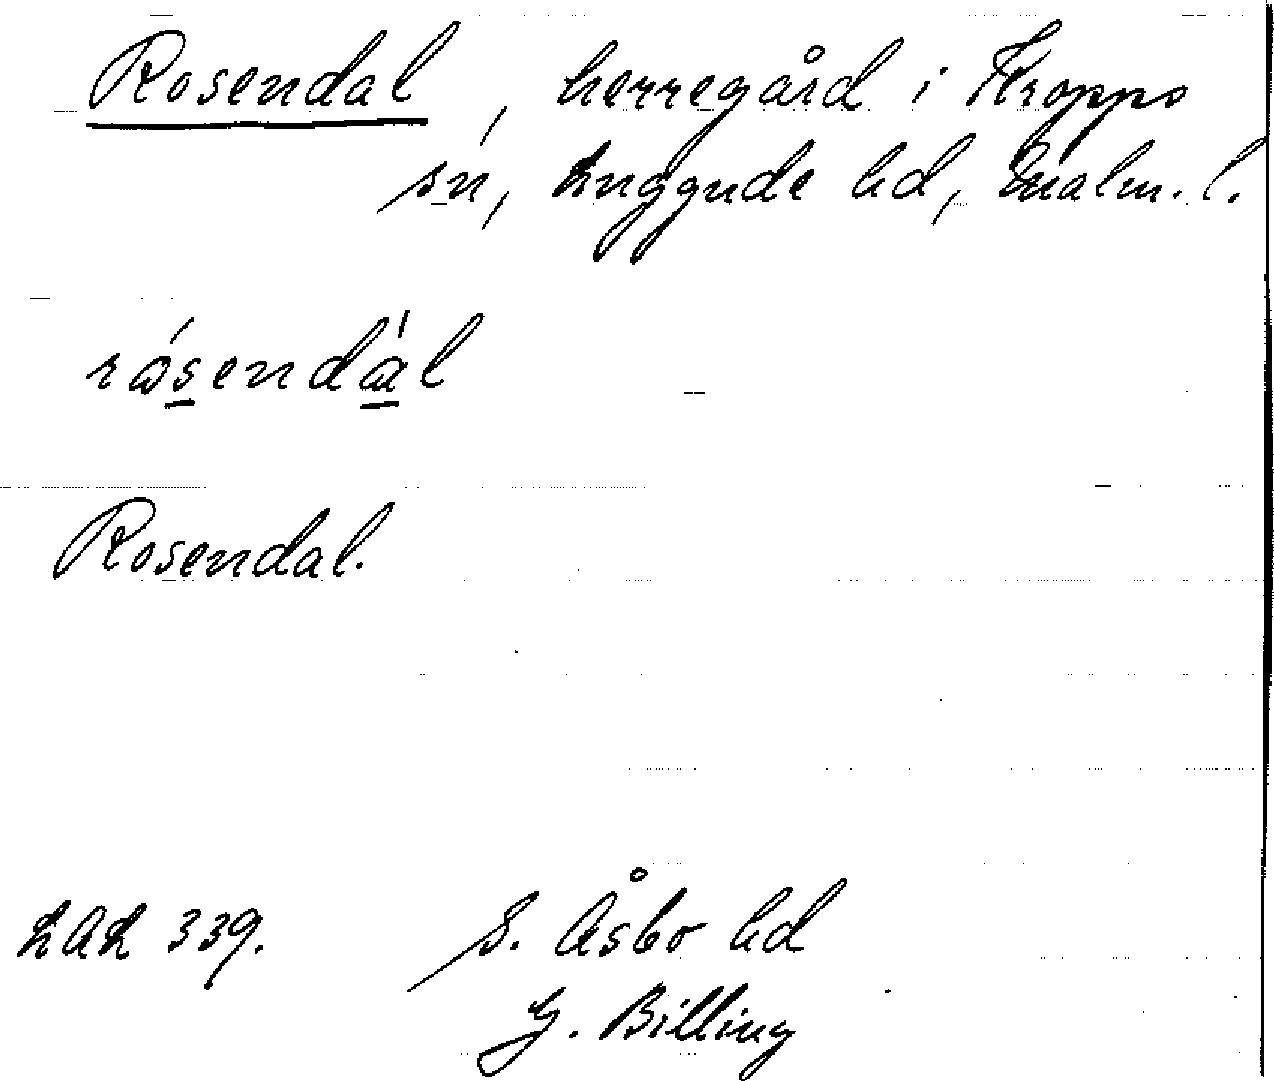 Rosendal, herregård i Kropps
sn, Luggude hd, Malm. l.
rósendál
Rosendal.
LAL 339. S. Åsbo hd
G. Billing